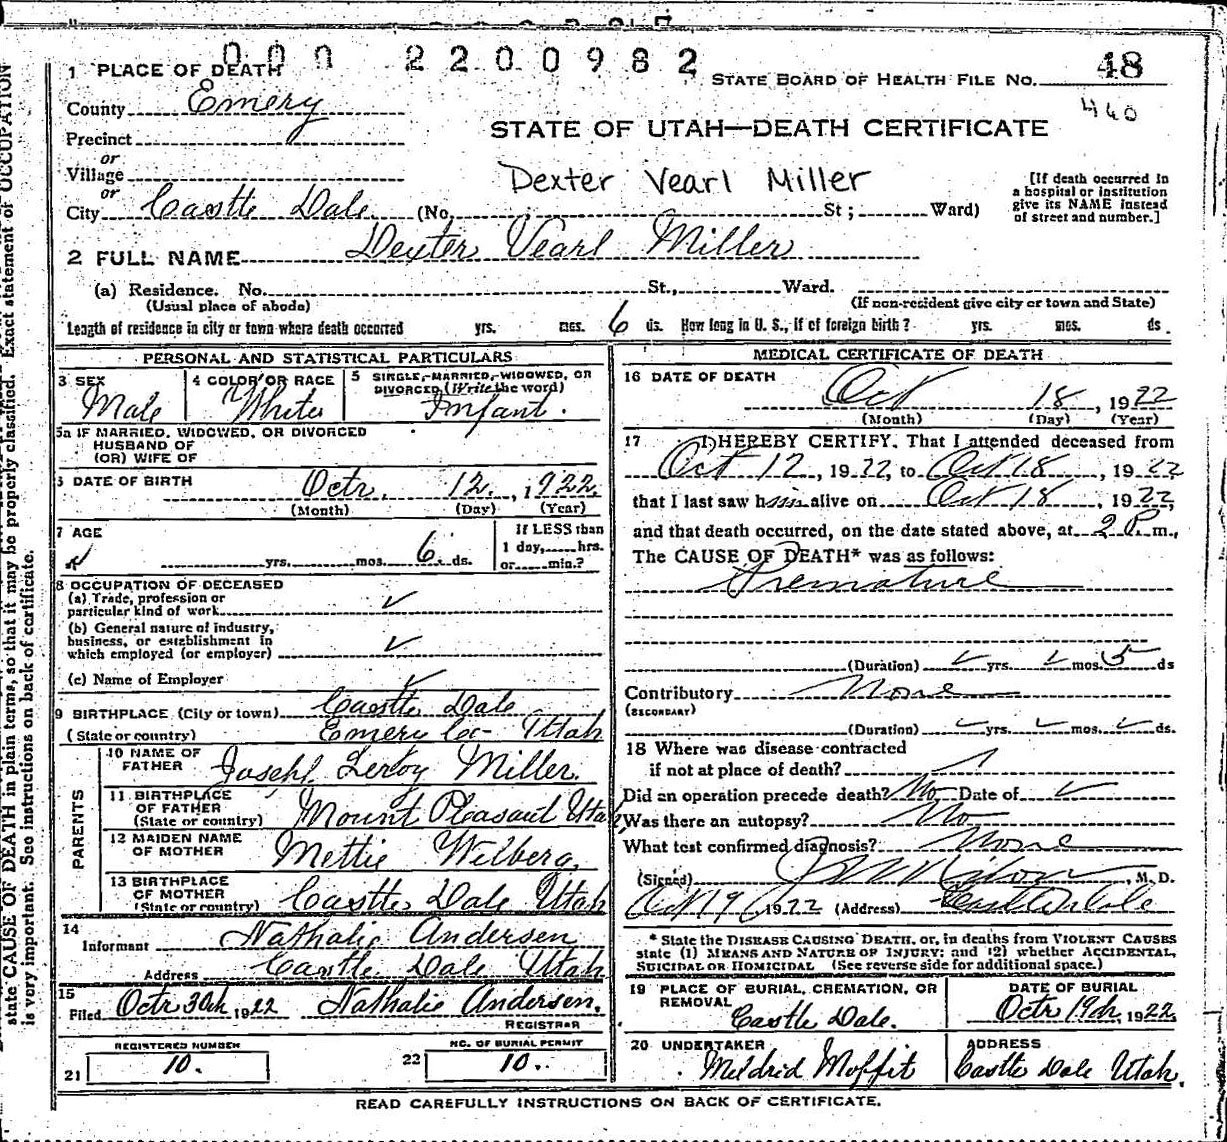 000 2200982
1 PLACE OF DEATH
STATE BOARD OF HEALTH FILE NO. 48
County Emery
440
Precinct
STATE OF UTAH—DEATH CERTIFICATE
or
Village
Dexter Vearl Miller
or
City Castle Dale (No. St; Ward)
[If death occurred in
a hospital or institution
give its NAME instead
of street and number.]
2 FULL NAME Dexter Vearl Miller
(a) Residence. No. St., Ward.
(Usual place of abode) (If non-resident give city or town and State)
Length of residence in city or town where death occurred yrs. mos. 6 ds. How long in U. S., if of foreign birth? yrs. mos. ds.
PERSONAL AND STATISTICAL PARTICULARS
3 SEX
Male
4 COLOR OR RACE
White
5 SINGLE, MARRIED, WIDOWED, OR
DIVORCED (Write the word)
Infant.
5a IF MARRIED, WIDOWED, OR DIVORCED
HUSBAND OF
(OR) WIFE OF
6 DATE OF BIRTH Octr. 12, 1922
(Month) (Day) (Year)
7 AGE
yrs. mos. 6 ds.
If LESS than
1 day, hrs.
or min.?
8 OCCUPATION OF DECEASED
(a) Trade, profession or
particular kind of work
(b) General nature of industry,
business, or establishment in
which employed (or employer)
(c) Name of Employer
9 BIRTHPLACE (City or town) Castle Dale
(State or country) Emery Co- Utah
PARENTS
10 NAME OF
FATHER Joseph Leroy Miller.
11 BIRTHPLACE
OF FATHER
(State or country) Mount Pleasant Utah
12 MAIDEN NAME
OF MOTHER Mettie Wilberg,
13 BIRTHPLACE
OF MOTHER
(State or country) Castle Dale Utah
14
Informant Nathalie Andersen
Address Castle Dale Utah
15
Filed Octr 30th 1922 Nathalie Andersen,
REGISTRAR
REGISTERED NUMBER
21 10.
NO. OF BURIAL PERMIT
22 10.
MEDICAL CERTIFICATE OF DEATH
16 DATE OF DEATH
Oct 18, 1922
(Month) (Day) (Year)
17 I HEREBY CERTIFY, That I attended deceased from
Oct 12, 1922, to Oct 18, 1922
that I last saw him alive on Oct 18, 1922,
and that death occurred, on the date stated above, at 2 P.m.,
The CAUSE OF DEATH* was as follows:
Premature
(Duration) yrs. mos. 5 ds
Contributory None
(SECONDARY)
(Duration) yrs. mos. ds.
18 Where was disease contracted
if not at place of death?
Did an operation precede death? No Date of
Was there an autopsy? No
What test confirmed diagnosis? None
(Signed) , M. D.
Oct 19, 1922 (Address) Castle Dale
* State the DISEASE CAUSING DEATH, or, in deaths from VIOLENT CAUSES
state (1) MEANS AND NATURE OF INJURY; and (2) whether ACCIDENTAL,
SUICIDAL OR HOMICIDAL (See reverse side for additional space.)
19 PLACE OF BURIAL, CREMATION, OR
REMOVAL
Castle Dale.
DATE OF BURIAL
Octr 19th, 1922
20 UNDERTAKER
Mildrid Moffit
ADDRESS
Castle Dale Utah.
READ CAREFULLY INSTRUCTIONS ON BACK OF CERTIFICATE.
state CAUSE OF DEATH in plain terms, so that it may be properly classified. Exact statement of OCCUPATION
is very important. See instructions on back of certificate.